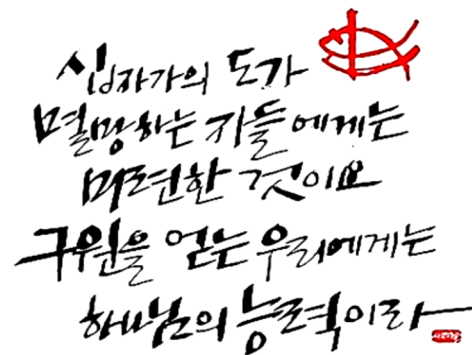 십자가의 도가
멸망하는 자들에게는
미련한 것이요
구원을 얻는 우리에게는
하나님의 능력이라